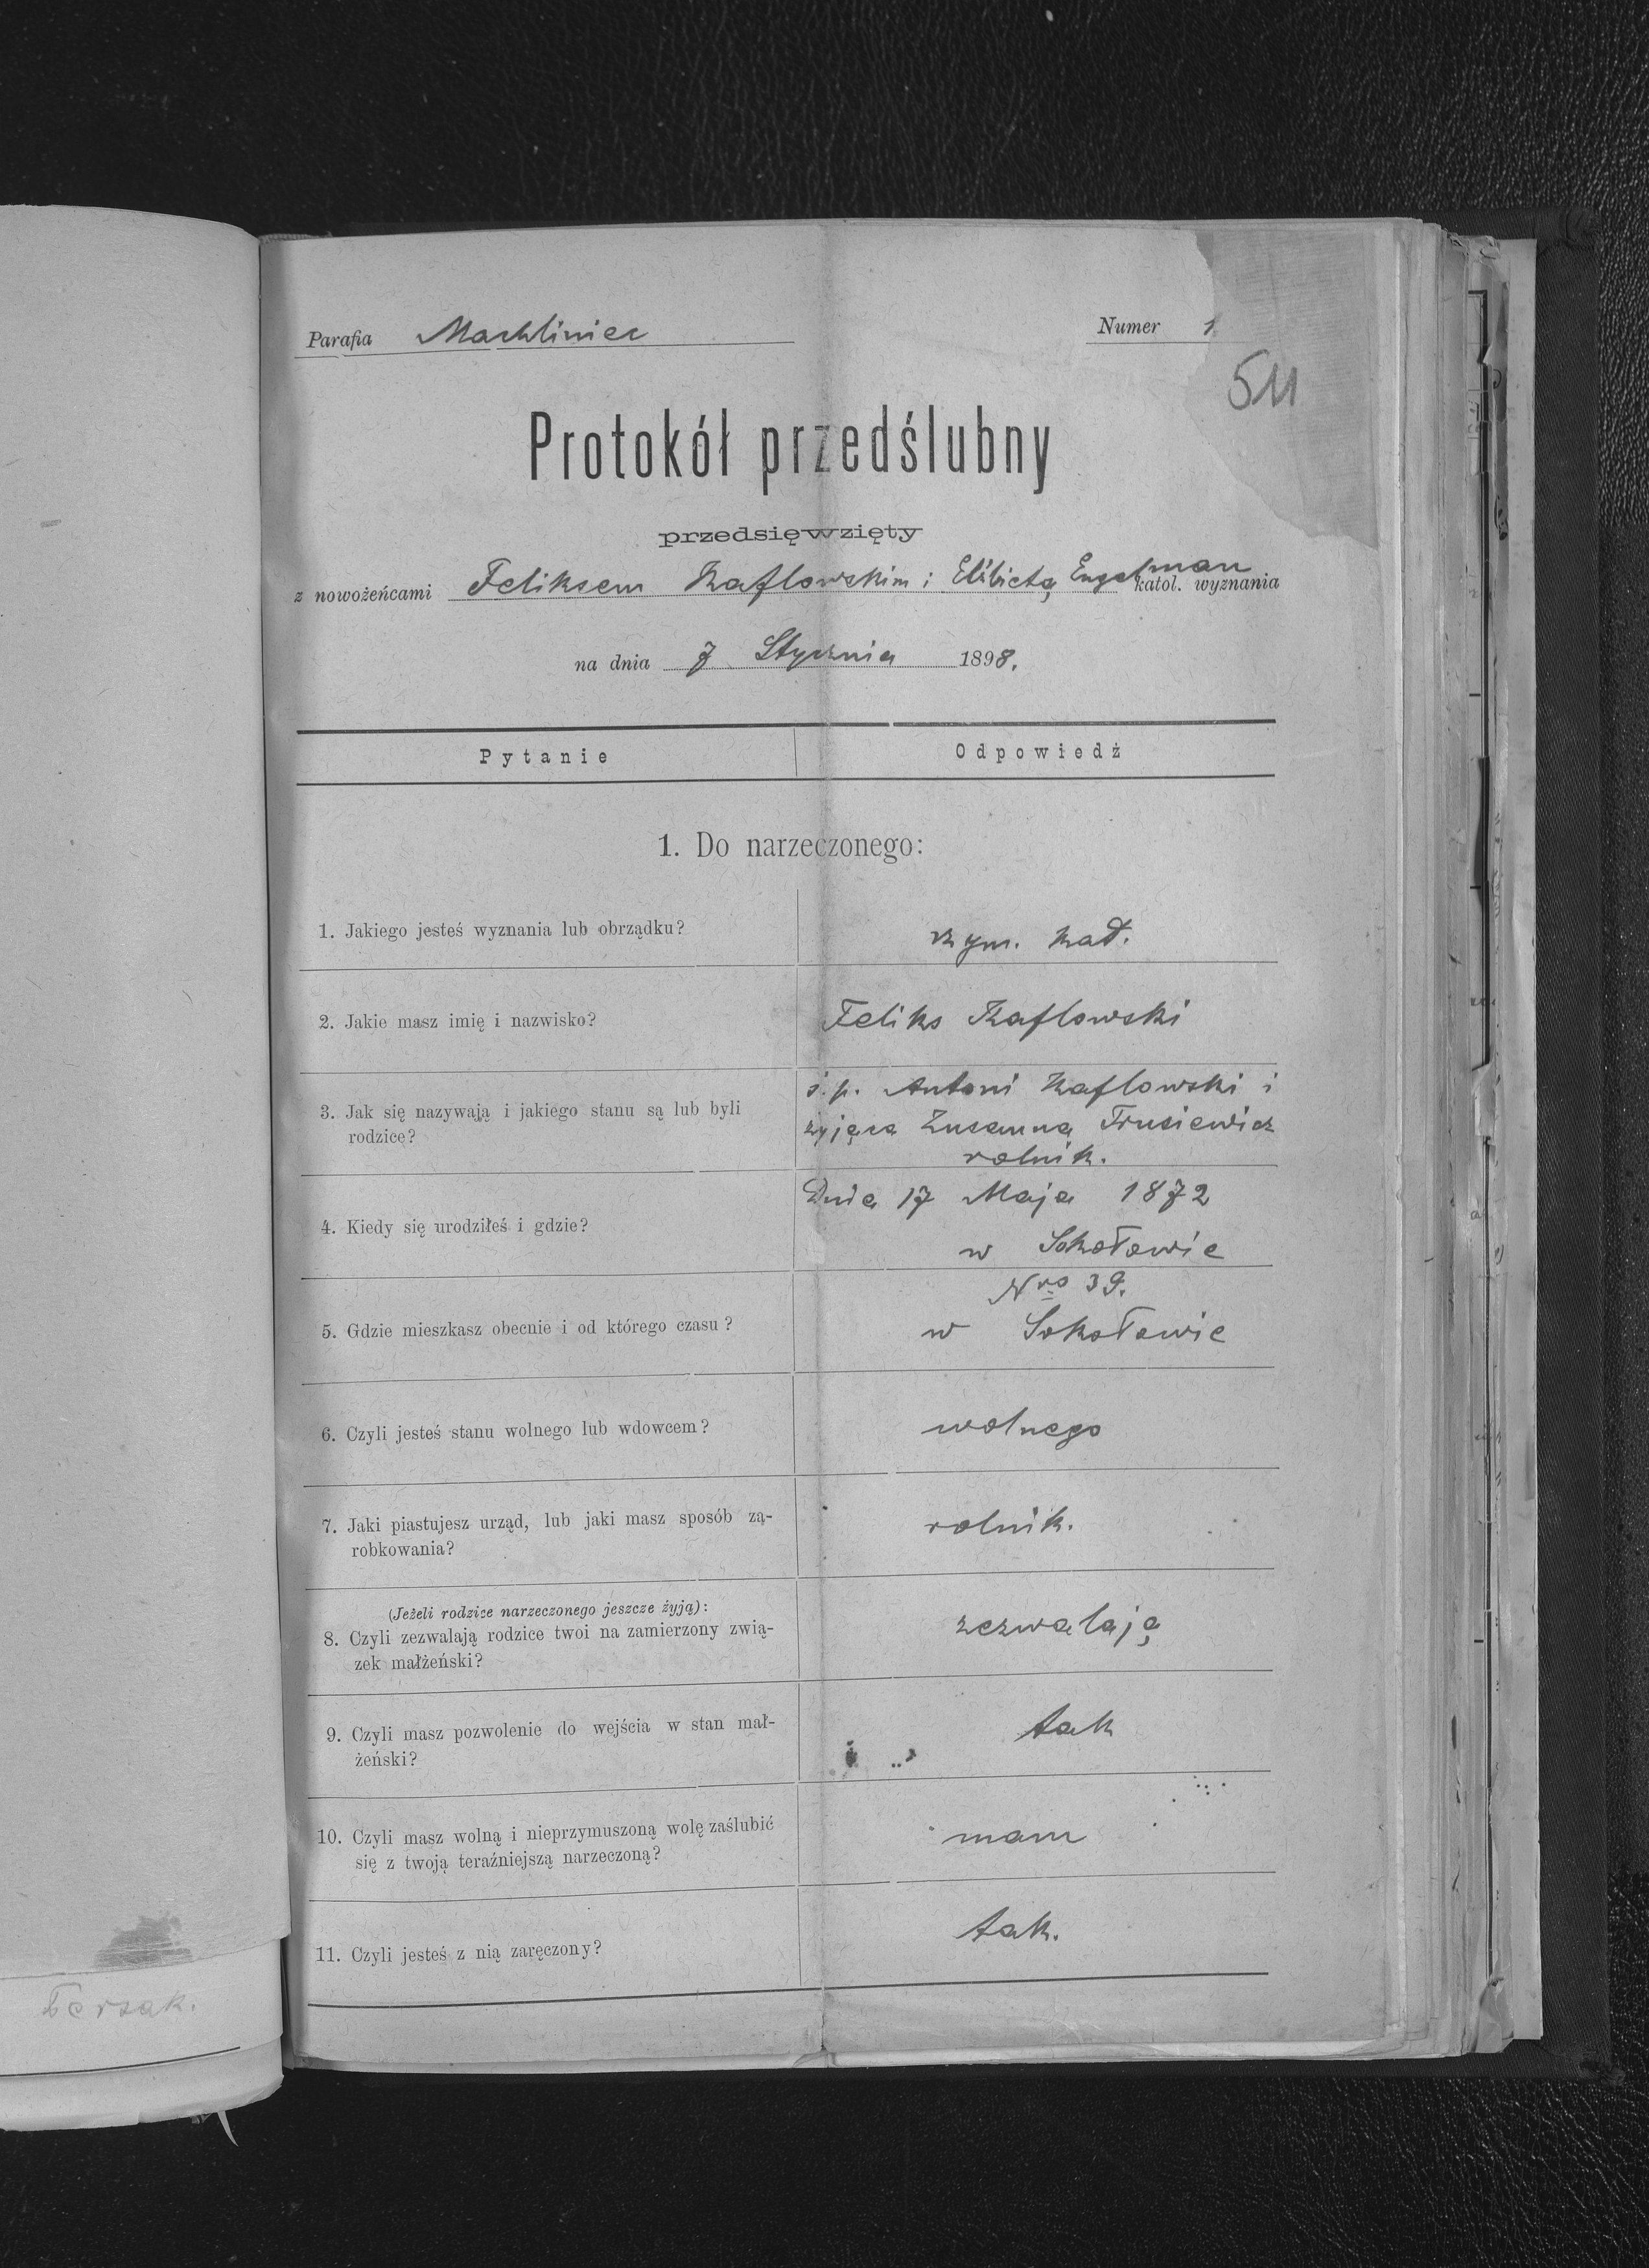 Parafia Machliniec
Numer 1
511
Protokół przedślubny
przedsięwzięty
z nowożeńcami Feliksem Kaflowskim i Elżbietą Engelman katol. wyznania
na dnia 7 Stycznia 1898.
Pytanie
Odpowiedź
1. Do narzeczonego:
1. Jakiego jesteś wyznania lub obrządku?
rzym. kat.
2. Jakie masz imię i nazwisko?
Feliks Kaflowski
3. Jak się nazywają i jakiego stanu są lub byli
rodzice?
ś. p. Antoni Kaflowski i
żyjąca Zusanna Trusiewicz
rolnik.
4. Kiedy się urodziłeś i gdzie?
Dnia 17 Maja 1872
w Sokołowie
Nro 39.
5. Gdzie mieszkasz obecnie i od którego czasu?
w Sokołowie
6. Czyli jesteś stanu wolnego lub wdowcem?
wolnego
7. Jaki piastujesz urząd, lub jaki masz sposób zą-
robkowania?
rolnik.
(Jeżeli rodzice narzeczonego jeszcze żyją):
8. Czyli zezwalają rodzice twoi na zamierzony zwią-
zek małżeński?
zezwalają
9. Czyli masz pozwolenie do wejścia w stan mał-
żeński?
tak
10. Czyli masz wolną i nieprzymuszoną wolę zaślubić
się z twoją teraźniejszą narzeczoną?
mam
11. Czyli jesteś z nią zaręczony?
tak.